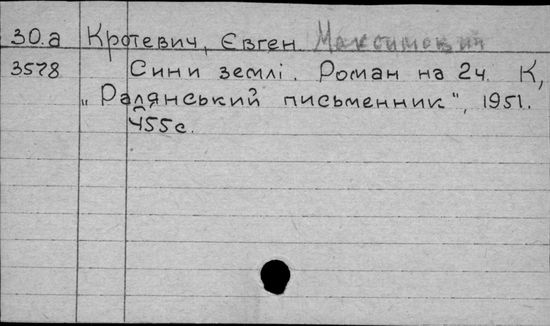 30.а Кротевич, Євген Максимович
3578 Сини землі. Роман на 2ч. К,
„Радянський письменник", 1951.
455с.